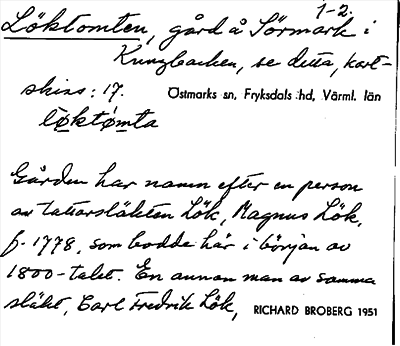 1-2.
Löktomten, gård å Sörmark i
Kungbacken, se detta, kart-
skiss: 17. Östmarks sn, Fryksdals hd, Värml. län
løktòmta
Gården har namn efter en person
av tattarsläkten Lök, Magnus Lök,
f. 1778, som bodde här i början av
1800-talet. En annan man av samma
släkt, Carl Fredrik Lök, RICHARD BROBERG 1951